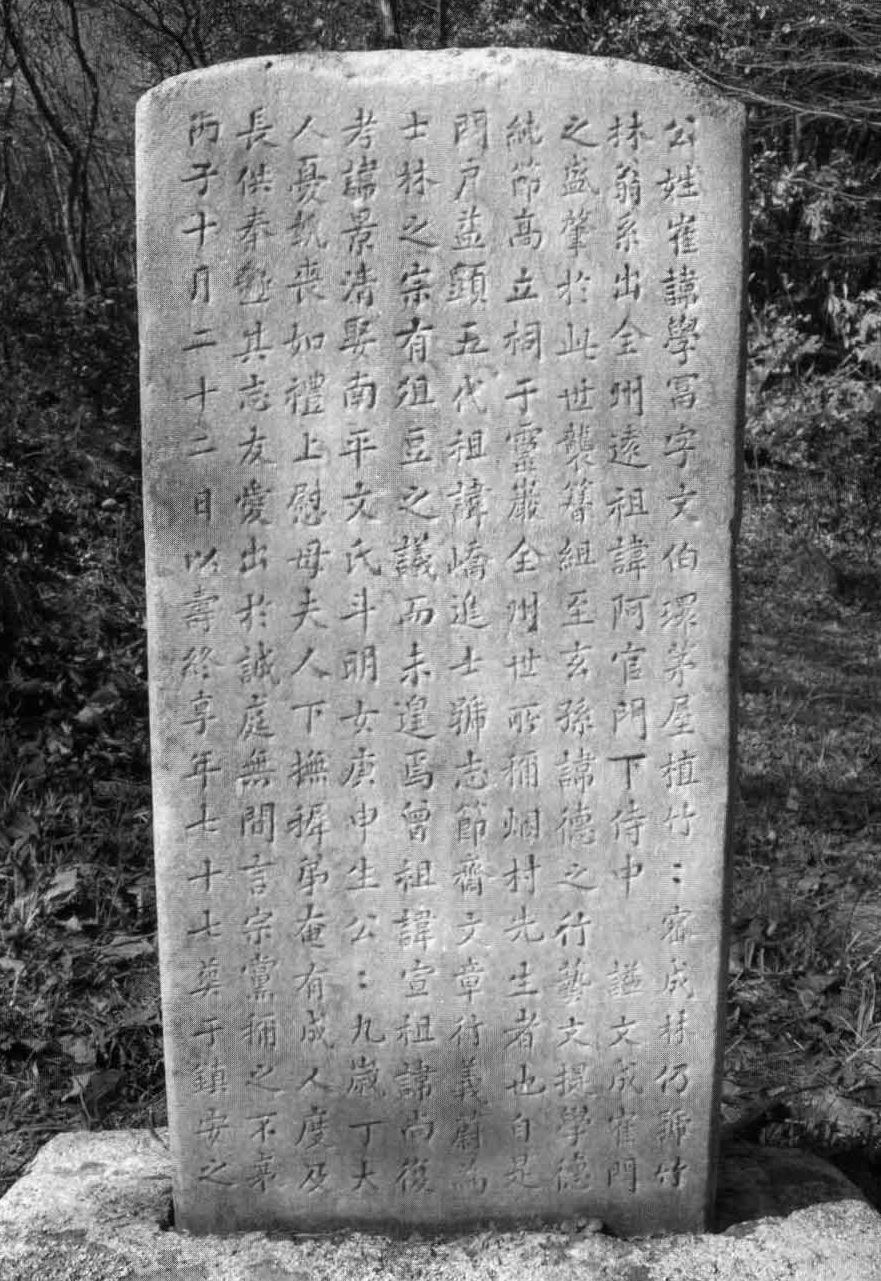 公姓崔諱學冨字文伯環茅屋植竹〻密成林仍號竹
林翁系出全州遠祖諱阿官門下侍中 諡文成崔門
之盛肇於此世襲簪組至玄孫諱德之行藝文提學德
純節高立祠于靈巖全州世所稱烟村先生者也自是
門戶益顯五代祖諱嶠進士號志節齋文章行義蔚爲
士林之宗有俎豆之議而未遑焉曾祖諱宣祖諱尙復
考諱景清娶南平文氏斗明女庚申生公〻九歲丁大
人憂執喪如禮上慰母夫人下撫穉弟奄有成人度及
長供奉其志友愛出於誠庭無間言宗黨稱之不
丙子十月二十二日以壽終享年七十七葬于鎮安之